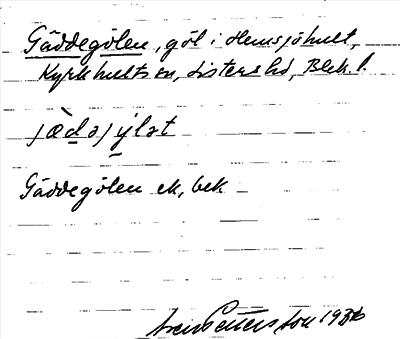 Gäddegölen, göl i Hemsjöhult,
Kyrkhults sn, Listers hd, Blek. l.
jæ̀dəjýlət
Gäddegölen ek, bek
Pettersson 19